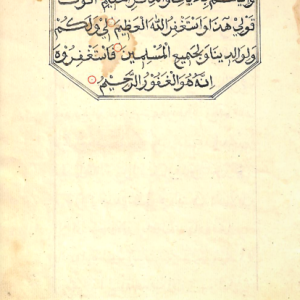 قولي هذا واستغفر الله العظيم لي ولكم
ولوالدينا ولجميع المسلمين فاستغفروه
انه هو الغفور الرحيم